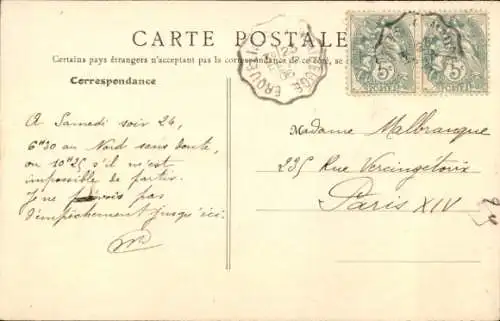 CARTE POSTALE
Certains pays étrangers n'acceptant pas la correspondance de ce côté, se
Correspondance
A Samedi soir 24,
6h30 au Nord sans doute,
ou 10h25 s'il n'est
impossible de partir.
Je ne prévois pas
d'empêchement jusqu'ici.
Madame Malbranque
235 Rue Vercingétorix
Paris XIV
5c 5c
POSTES POSTES